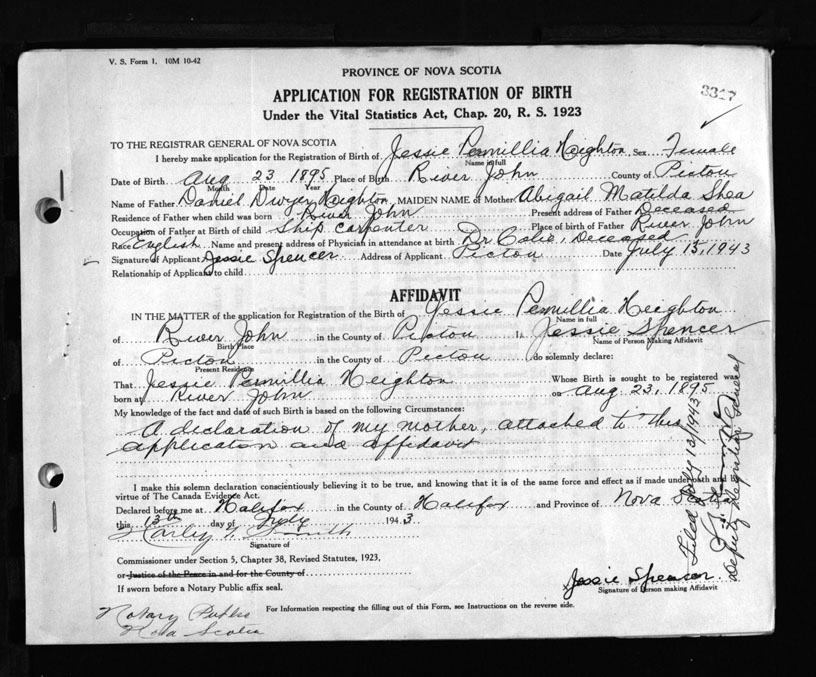 V. S. Form 1. 10M 10-42
PROVINCE OF NOVA SCOTIA
3317
APPLICATION FOR REGISTRATION OF BIRTH
Under the Vital Statistics Act, Chap. 20, R. S. 1923
TO THE REGISTRAR GENERAL OF NOVA SCOTIA
I hereby make application for the Registration of Birth of Jessie Permillia Heighton Sex Female
Name in full
Date of Birth Aug 23 1895 Place of Birth River John County of Pictou
Month Date Year
Name of Father Daniel Dwyer Heighton MAIDEN NAME of Mother Abigail Matilda Shea
Residence of Father when child was born River John Present address of Father Deceased
Occupation of Father at Birth of child Ship Carpenter Place of birth of Father River John
Race English Name and present address of Physician in attendance at birth Dr. Colie, Deceased
Signature of Applicant Jessie Spencer Address of Applicant Pictou Date July 13, 1943
Relationship of Applicant to child
AFFIDAVIT
IN THE MATTER of the application for Registration of the Birth of Jessie Permillia Heighton
Name in full
of River John in the County of Pictou I Jessie Spencer
Birth Place Name of Person Making Affidavit
of Pictou in the County of Pictou do solemnly declare:
Present Residence
That Jessie Permillia Heighton Whose Birth is sought to be registered was
born at River John on Aug. 23, 1895
My knowledge of the fact and date of such Birth is based on the following Circumstances:
A declaration of my mother, attached to this
application and affidavit
I make this solemn declaration conscientiously believing it to be true, and knowing that it is of the same force and effect as if made under oath and by
virtue of The Canada Evidence Act.
Declared before me at Halifax in the County of Halifax and Province of Nova Scotia
this 13th day of July 1943.
Harley Smith
Signature of
Commissioner under Section 5, Chapter 38, Revised Statutes, 1923,
or Justice of the Peace in and for the County of
If sworn before a Notary Public affix seal.
Jessie Spencer.
Signature of Person making Affidavit
For Information respecting the filling out of this Form, see Instructions on the reverse side.
Notary Public
Nova Scotia
Filed July 13/1943
Deputy Registrar General